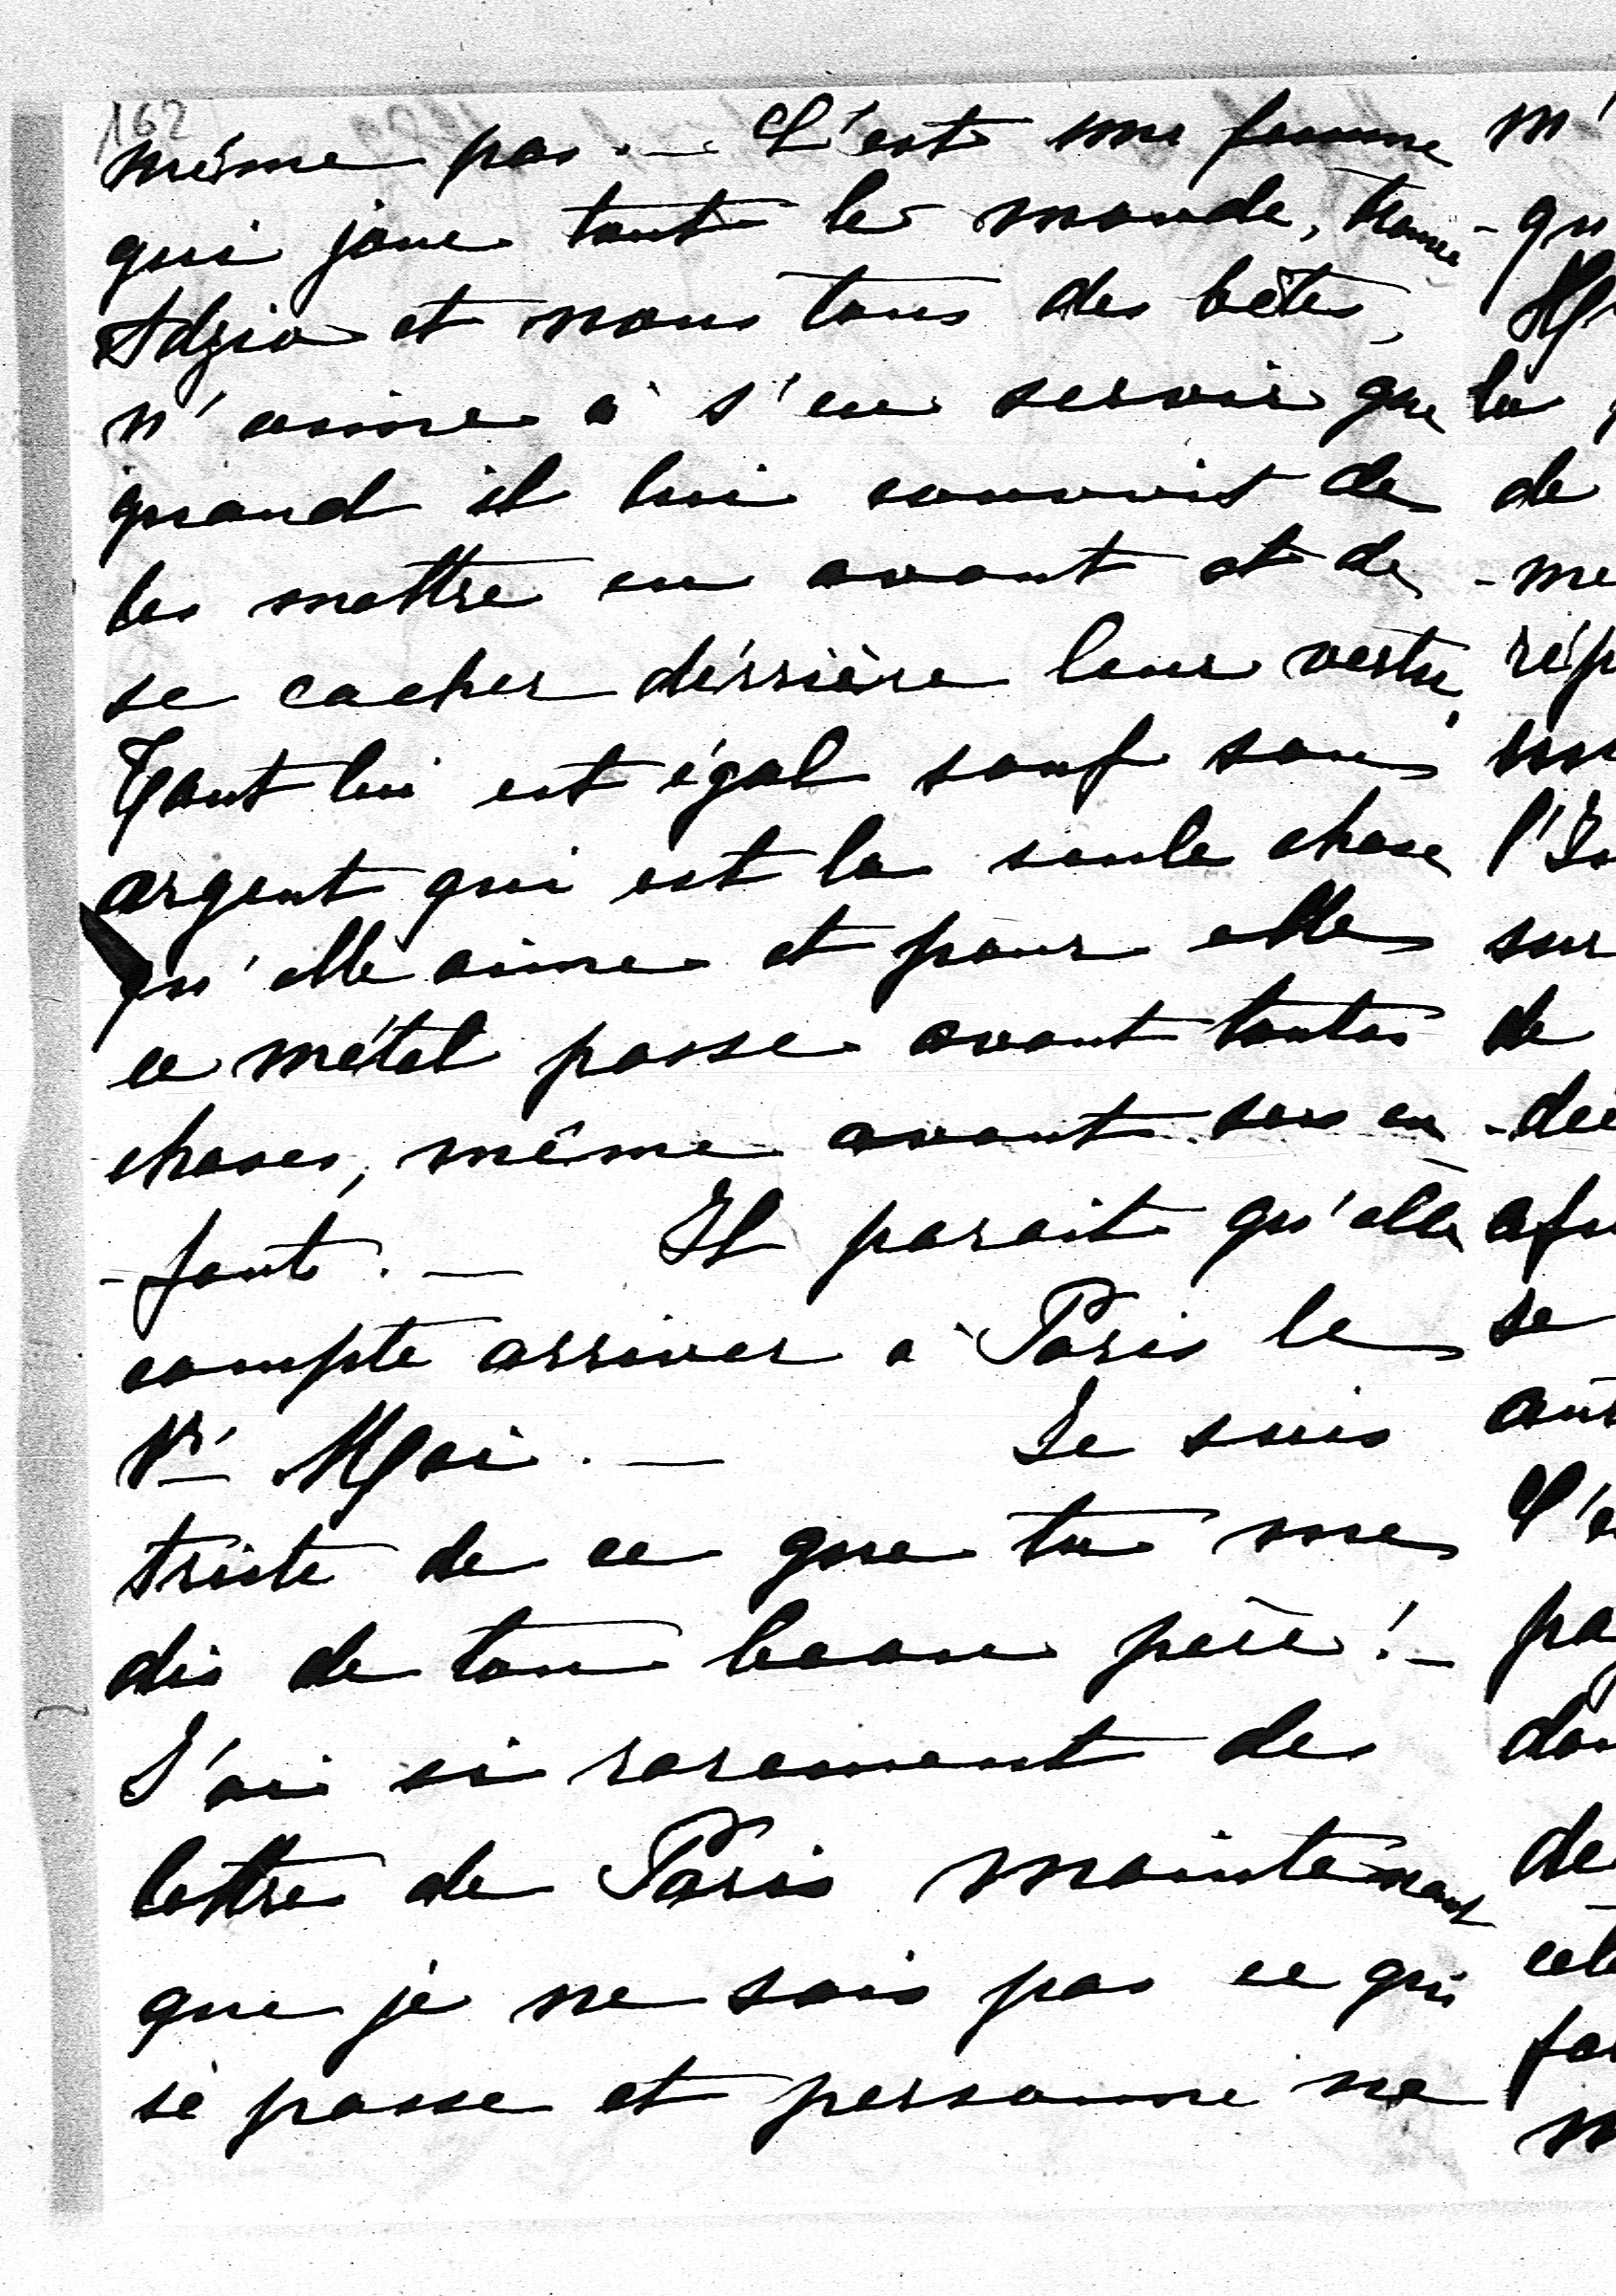 162
même pas. — C'est une femme
qui joue tout le monde, trouve
Adzio et nous tous des bêtes,
n'aime à s'en servir que
quand il lui convient de
les mettre en avant et de
se cacher dérrière leur vertu.
Tout lui est égal sauf son
argent qui est la seule chose
qu'elle aime et pour elle
ce métal passe avant toutes
choses, même avant son en
-fant. — Il parait qu'elle
compte arriver à Paris le
1er Mai. — Je suis
triste de ce que tu me
dis de ton beau père! —
J'ai si rarement des
lettre de Paris maintenant
que je ne sais pas ce qui
se passe et personne ne
m'
-qu
la
de
-me
rép
sur
de
se
pa
de